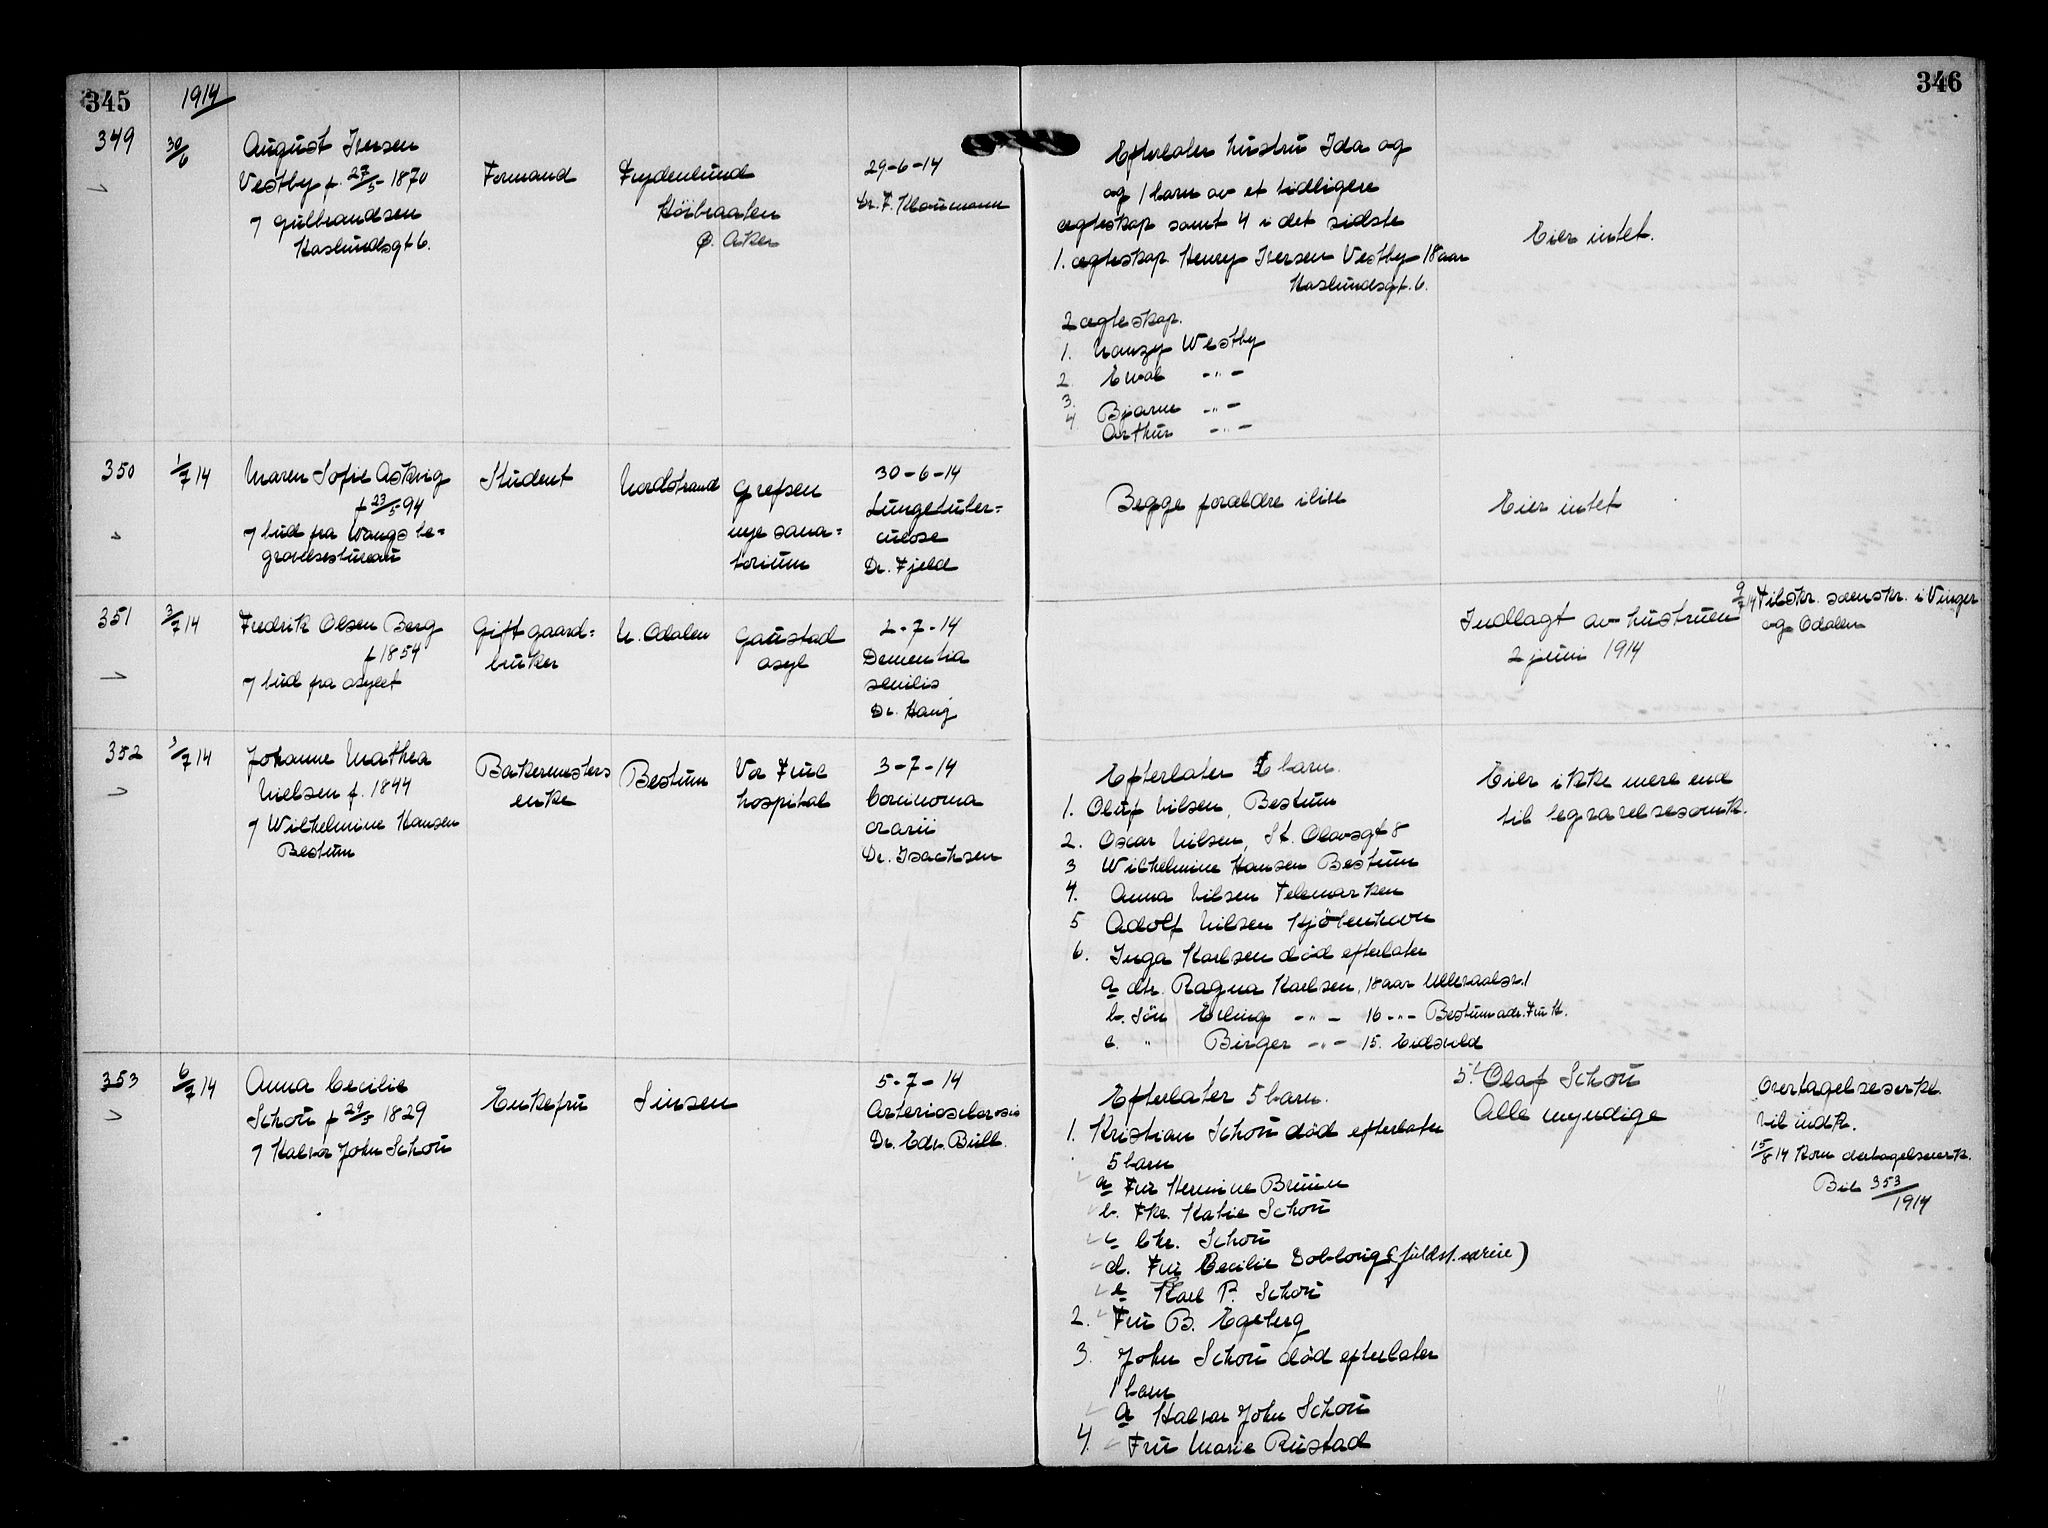 345
1914
346
349
30/6
August Iversen
Vestby f. 27/5 1870
7 Gulbrandsen
Haslundsgt 6.
Formand
Frydenlund
Høibraaten
Ø. Aker
29-6-14
Dr. F. Klaumann
Efterlater hustru Ida og
og 1 barn av et tidligere
ægteskap samt 4 i det sidste
1. ægteskap Henry Iversen Vestby 18 aar
Haslundsgt. 6.
2 ægteskap.
1. Nanzy Westby
2. Enok -"-
3. Bjarne -"-
4 Arthur -"-
Eier intet.
350
1/7 14
Maren Sofie Askrig
f 23/5 94
7 bud fra Wangs be=
gravelsesbureau
Student
Nordstrand
Grefsen
nye sana=
torium
30-6-14
Lungetuber=
culose
Dr. Fjeld
Begge forældre ilive
Eier intet
351
3/7 14
Fredrik Olsen Berg
f 1854
7 bud fra asylet
Gift gaard=
bruker
N. Odalen
Gaustad
asyl
2-7-14
Dementia
senilis
Dr. Haug
Indlagt av hustruen
2 juni 1914
9/7 14 Tilskr. sorenskr. i Vinger
og Odalen
352
3/7 14
Johanne Mathea
Nielsen f. 1844
7 Wilhelmine Hansen
Bestum
Bakermesters
enke
Bestum
Vor Frue
hospital
3-7-14
Carcinoma
ovarii
Dr. Isachsen
Efterlater barn.
1. Oluf Nilsen, Bestum
2. Oscar Nilsen, St. Olavsgt 8
3 Wilhelmine Hansen Bestum
4. Anna Nilsen Telemarken
5 Adolf Nilsen Kjöbenhavn
6. Inga Karlsen död efterlater
a dtr. Ragna Karlsen, 18 aar Ullevaalsv. 1
b. Sön Erling -"- 16 -"- Bestum adr. Fru H.
c. " Birger -"- 15. Eidsvold
Eier ikke mere end
til begravelsesomk.
353
6/7 14
Anna Cecilie
Schou f 29/3 1829
7 Halvor John Schou
Enkefru
Sinsen
5-7-14
Arteriosclerosis
Dr. Edv. Bull.
Efterlater 5 barn.
1. Kristian Schou død efterlater
5 barn
a Fru Hermine Bruun
b. Frk. Katie Schou
c Chr. Schou
d. Fru Cecilie (fuldst. særeie)
e Karl P. Schou
2. Fru B. Egeberg
3. John Schou död efterlater
1 barn
a Halvor John Schou
4. Fru Marie Rustad
5. Olaf Schou
Alle myndige
Overtagelseserkl.
vil indk.
15/8 14 Kom overtagelseserk.
Bil 353/1914